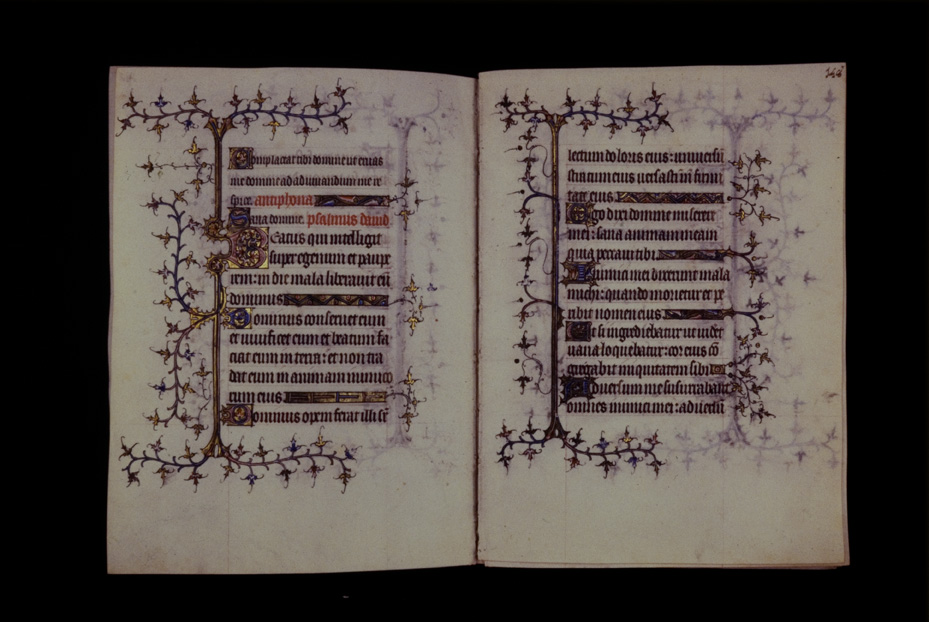 Complaceat tibi domine ut eruas
me domine ad adiuuandum me re
spice. antiphona
Sana domine. psalmus dauid
Beatus qui intelligit
super egenum et paupe
rem: in die mala liberauit eū
dominus
Dominus conseruet eum
et uiuificet eum et beatum fa
ciat eum in terra: et non tra
dat eum in animam inimico
rum eius
Dominus opem ferat illi sr̄
lectum doloris eius: uniuersū
stratum eius uersasti in firmi
tate eius
Ego dixi domine miserere
mei: sana animam meam
quia peccaui tibi
Inimici mei dixerunt mala
michi: quando morietur et pe
ribit nomen eius
Et si ingrediebatur ut uidet
uana loquebatur: cor eius cō
gregabit iniquitatem sibi
Aduersum me susurrabant
omnes inimici mei: aduersū